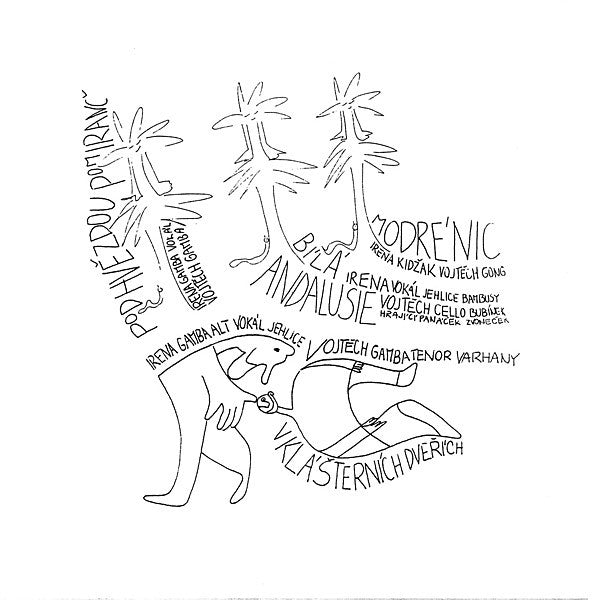 POD HVĚZDOU POMRANČ
IRENA GAMBA VOKÁL
VOJTĚCH GAMBA
MODRÉ NIC
IRENA KIDŽAK VOJTĚCH GONG
BÍLÁ
ANDALUSIE
IRENA VOKÁL JEHLICE BAMBUSY
VOJTĚCH CELLO BUBÍNEK
HRAJÍCÍ PANÁČEK ZVONEČEK
IRENA GAMBA ALT VOKÁL JEHLICE
VOJTECH GAMBA TENOR VARHANY
V KLÁŠTERNÍCH DVEŘÍCH